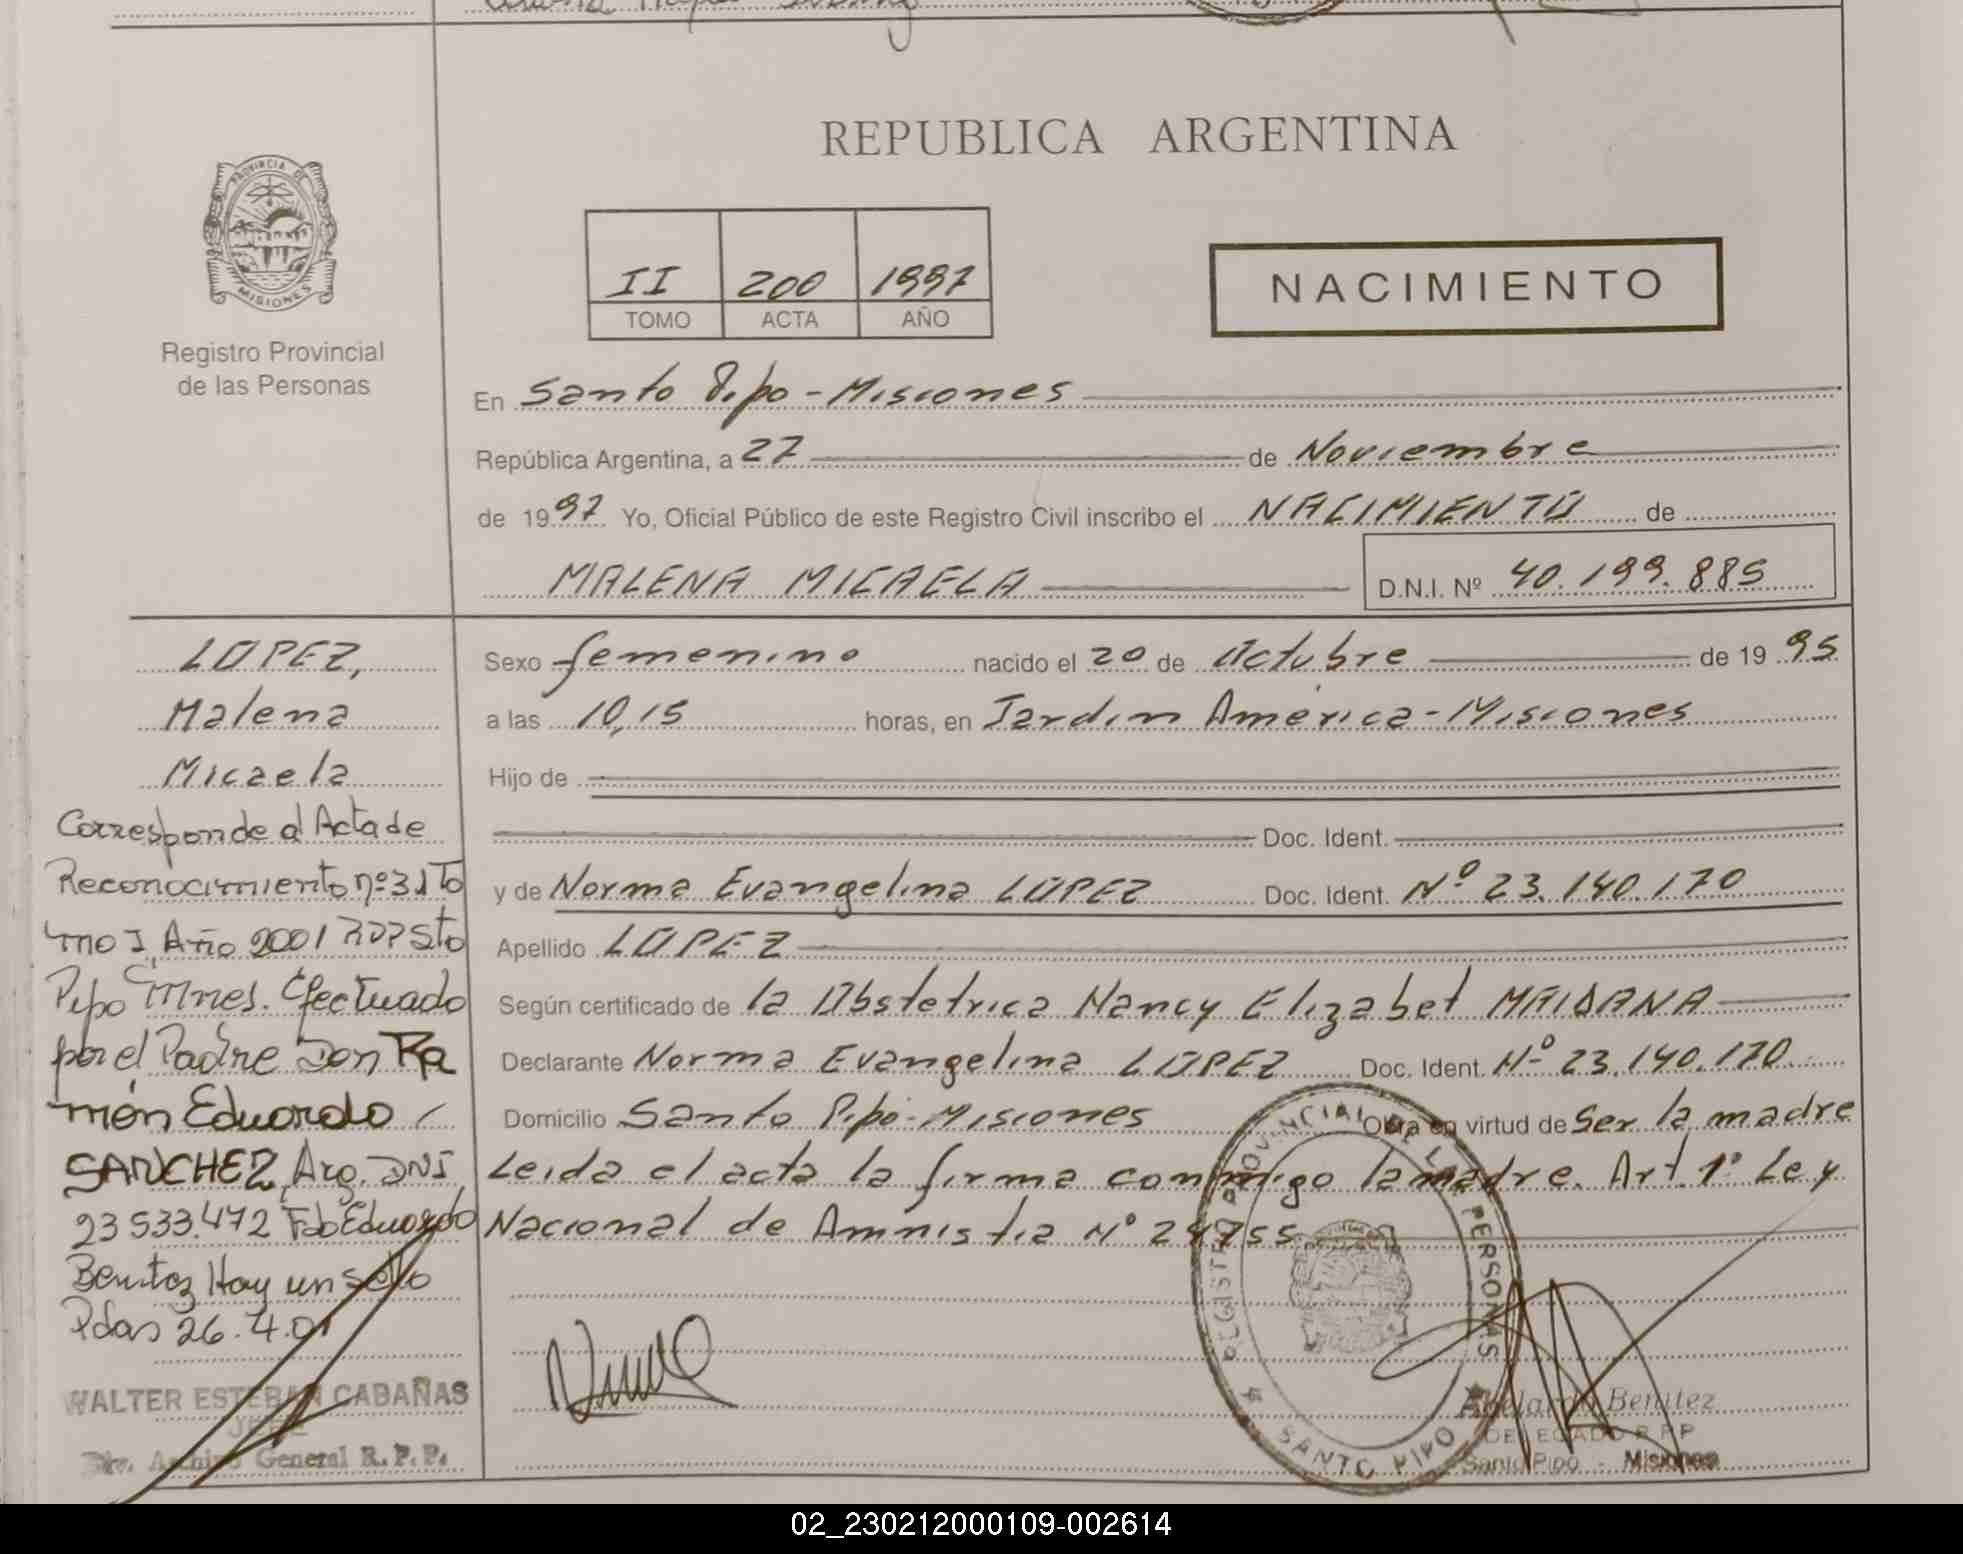 REPUBLICA ARGENTINA
PROVINCIA DE
MISIONES
Registro Provincial
de las Personas
II 200 1997
TOMO ACTA AÑO
NACIMIENTO
En Santo Pipo - Misiones
República Argentina, a 27 de Noviembre
de 1997 Yo, Oficial Público de este Registro Civil inscribo el NACIMIENTO de
MALENA MICAELA D.N.I. Nº 40.199.885
LOPEZ,
Malena
Micaela
Corresponde al Acta de
Reconocimiento nº 31 To
mo I Año 2001 RPP Sto
Pipo Mnes. Efectuado
por el Padre Don Ra
món Eduardo
SANCHEZ Arg. DNI
23533.472 Fdo Eduardo
Benitez Hay un sello
Pdas 26.4.01
WALTER ESTEBAN CABAÑAS
JEFE
Div. Archivo General R.P.P.
Sexo femenino nacido el 20 de Octubre de 1995
a las 10,15 horas, en Jardin América - Misiones
Hijo de
Doc. Ident.
y de Norma Evangelina LOPEZ Doc. Ident. Nº 23.140.170
Apellido LOPEZ
Según certificado de la Obstetrica Nancy Elizabet MAIDANA
Declarante Norma Evangelina LOPEZ Doc. Ident. Nº 23.140.170
Domicilio Santo Pipó - Misiones Obra en virtud de Ser la madre
Leida el acta la firma conmigo la madre. Art. 1º Ley
Nacional de Amnistia Nº 24755
REGISTRO PROVINCIAL DE LAS PERSONAS
SANTO PIPO
Abelardo Benitez
DELEGADO R.P.P
Santo Pipó - Misiones
02_230212000109-002614